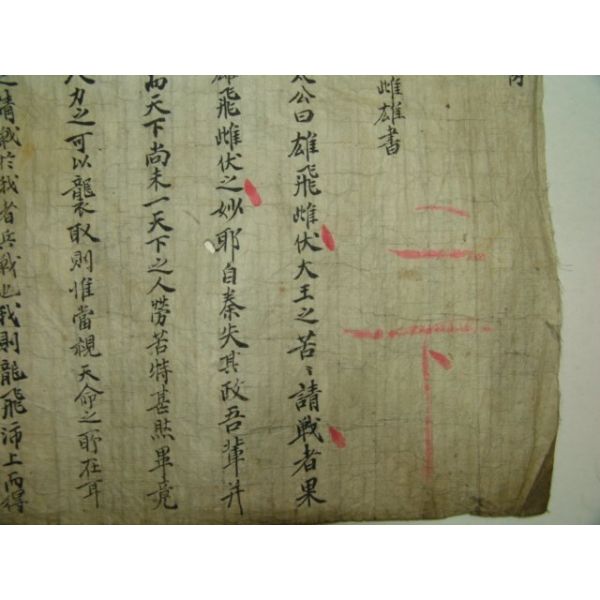 雌雄書
公曰雄飛雌伏大王之苦〻請戰者果
飛雌伏之妙耶自秦失其政吾輩并
天下尚未一天下之人勞苦特甚然畢竟
力之可以襲取則惟當視天命之所在耳
請戰於我者兵戰也我則龍飛沛上而得
二下